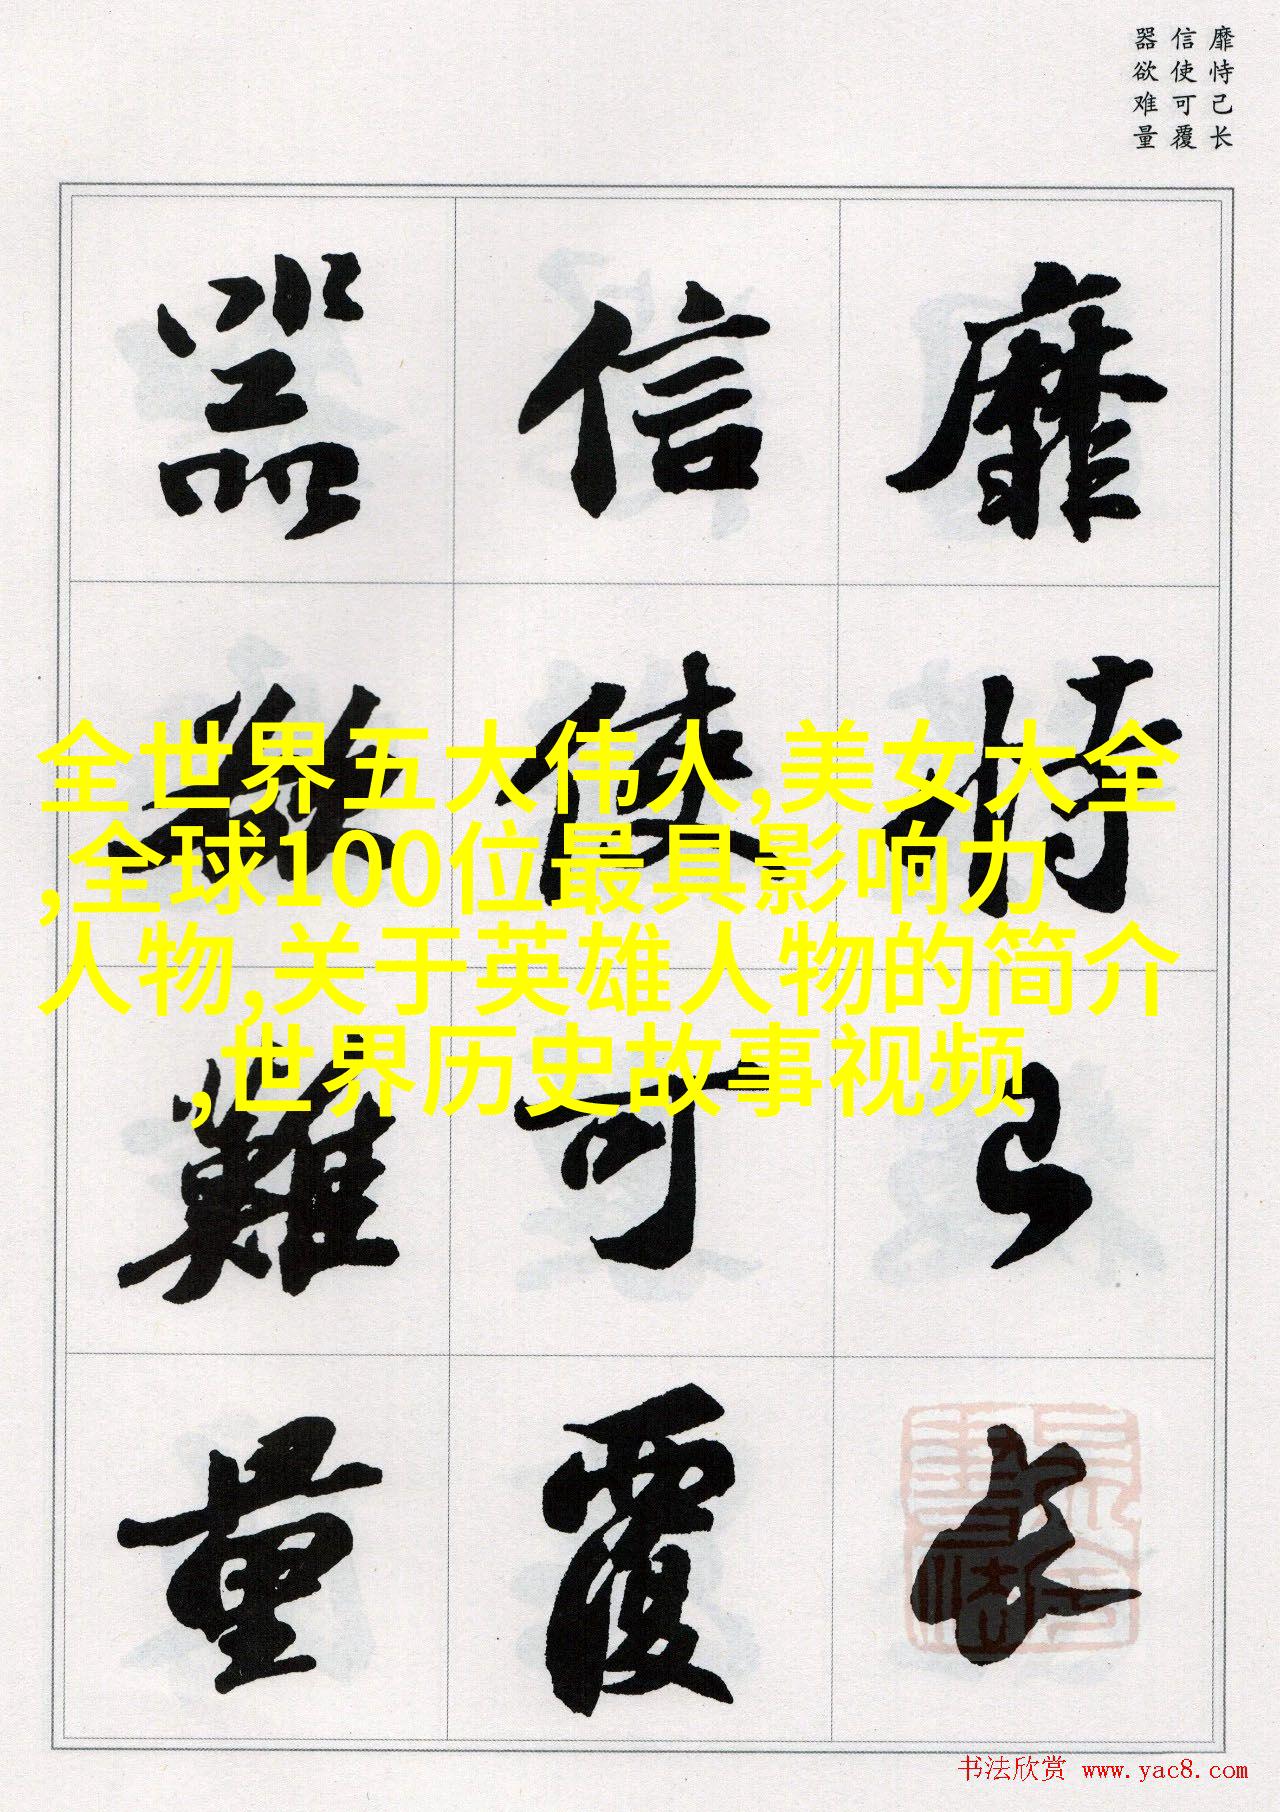 靡恃己长
信使可覆
器欲难量
靡恃己长
信使可覆
器欲難量
全世界五大伟人,美女大全
,全球100位最具影响力
人物,关于英雄人物的简介
,世界历史故事视频
书法欣赏 www.yac8.com